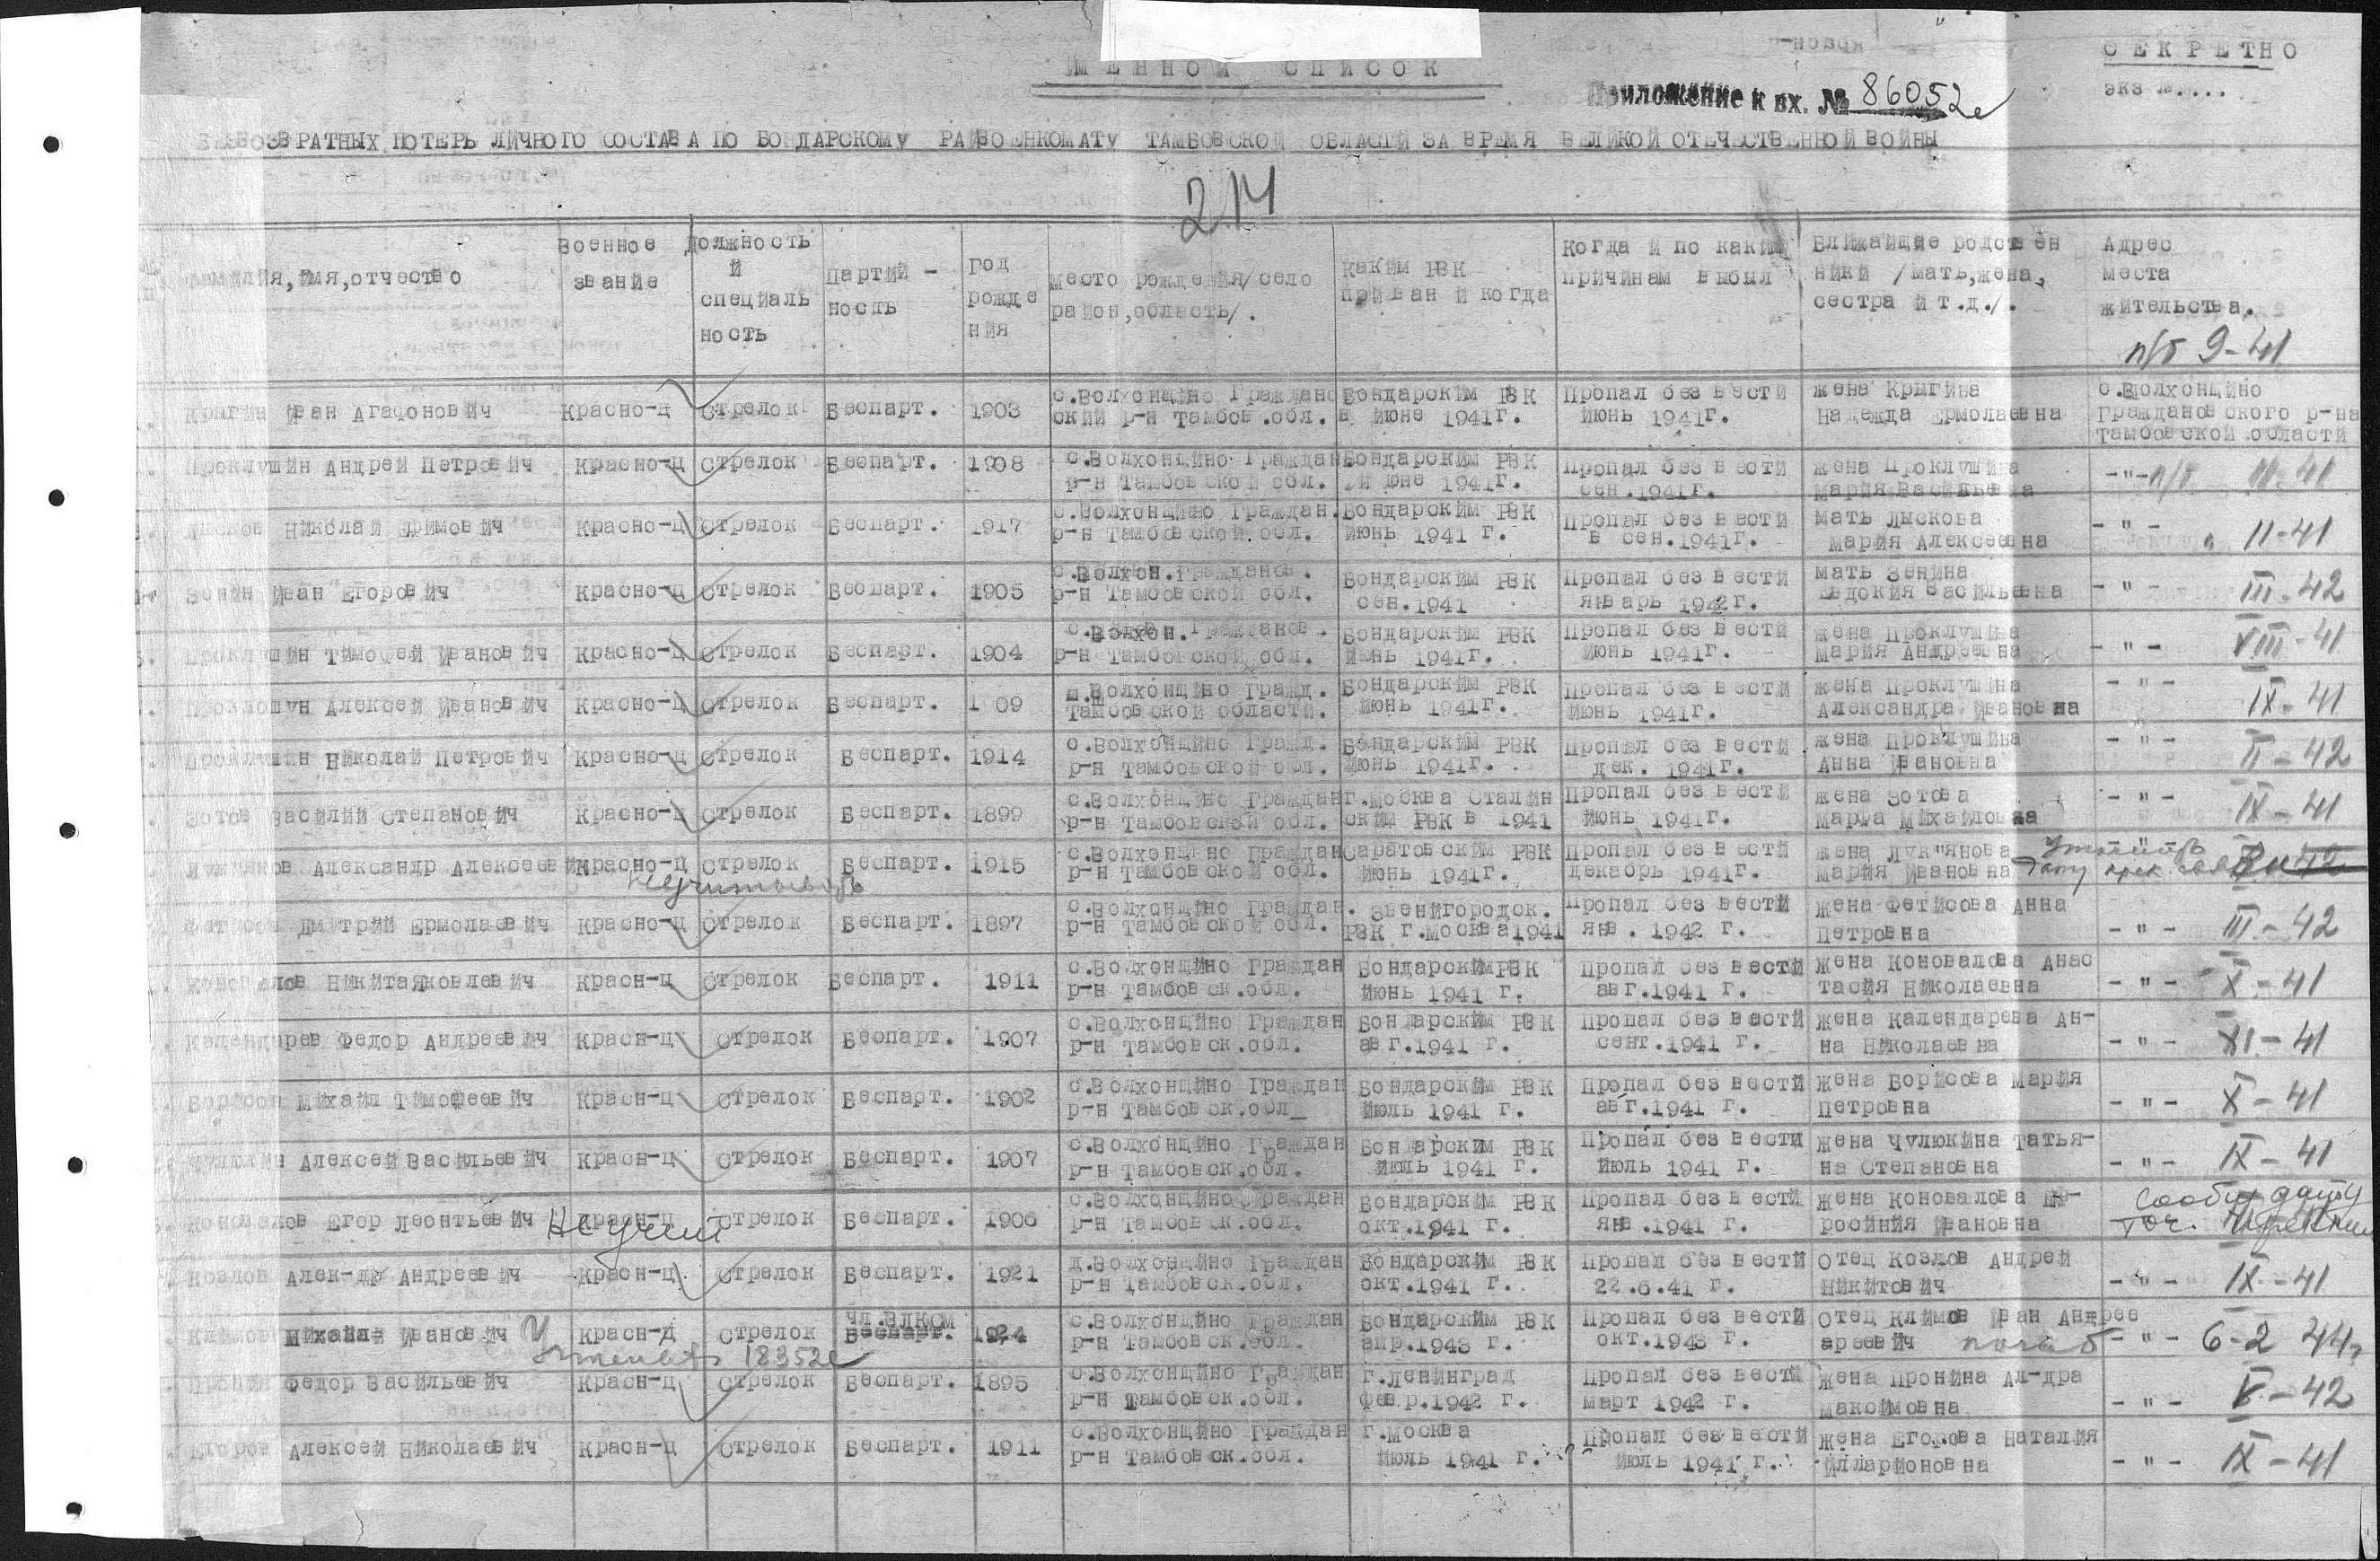 СЕКРЕТНО
экз №....
ИМЕННОЙ СПИСОК
Приложение к вх. № 86052с
БЕЗВОЗВРАТНЫХ ПОТЕРЬ ЛИЧНОГО СОСТАВА ПО БОНДАРСКОМУ РАЙВОЕНКОМАТУ ТАМБОВСКОЙ ОБЛАСТИ ЗА ВРЕМЯ ВЕЛИКОЙ ОТЕЧЕСТВЕННОЙ ВОЙНЫ
Фамилия,имя,отчество | Военное звание | Должность и специаль ность | Партий - ность | Год рожде ния | Место рождения/село район,область/. | Каким РВК призван и когда | Когда и по каким причинам выбыл | Ближайшие родствен ники /мать,жена, сестра и т.д./. | Адрес места жительства.
п/б 9-41
Крыгин Иван Агафонович | Красно-ц | Стрелок | Беспарт. | 1903 | с.Волхонщино Граждано ский р-н Тамбов.обл. | Бондарским РВК в июне 1941г. | Пропал без вести июнь 1941г. | жена Крыгина Надежда Ермолаевна | с.Волхонщино Граждановского р-на Тамбовской области
Проклушин Андрей Петрович | Красно-ц | Стрелок | Беспарт. | 1908 | с.Волхонщино Граждан р-н Тамбовской обл. | Бондарским РВК июне 1941г. | Пропал без вести сен.1941г. | жена Проклушина Мария Васильевна | -"- п/б 41
Лысков Николай Ефимович | Красно-ц | Стрелок | Беспарт. | 1917 | с.Волхонщино Граждан. р-н Тамбовской обл. | Бондарским РВК июнь 1941 г. | Пропал без вести в сен.1941г. | мать Лыскова Мария Алексеевна | -"- " 11-41
Зенин Иван Егорович | Красно-ц | Стрелок | Беспарт. | 1905 | с.Волхон.Гражданов. р-н Тамбовской обл. | Бондарским РВК сен.1941 | Пропал без вести январь 1942г. | мать Зенина Евдокия Васильевна | -"- III-42
Проклушин Тимофей Иванович | Красно-ц | Стрелок | Беспарт. | 1904 | с.Волхон.Гражданов. р-н Тамбовской обл. | Бондарским РВК июнь 1941г. | Пропал без вести июнь 1941г. | жена Проклушина Мария Андреевна | -"- VIII-41
Алексей Иванович | Красно-ц | Стрелок | Беспарт. | 1 09 | Волхонщино Гражд. Тамбовской области. | Бондарским РВК июнь 1941г. | Пропал без вести июнь 1941г. | жена Проклушина Александра Ивановна | -"- IX-41
Проклушин Николай Петрович | Красно-ц | Стрелок | Беспарт. | 1914 | с.Волхонщино Гражд. р-н Тамбовской обл. | Бондарским РВК июнь 1941г. | Пропал без вести дек. 1941г. | жена Проклушина Анна Ивановна | -"- II-42
Зотов Василий Степанович | Красно-ц | Стрелок | Беспарт. | 1899 | с.Волхонщино Граждан р-н Тамбовской обл. | г.Москва Сталин ским РВК в 1941 | Пропал без вести июнь 1941г. | жена Зотова Марфа Михаиловна | -"- IX-41
Александр Алексеевич | Красно-ц | Стрелок | Беспарт. | 1915 | с.Волхонщино Граждан р-н Тамбовской обл. | Саратовским РВК июнь 1941г. | Пропал без вести декабрь 1941г. | жена Лук"янова Мария Ивановна
не учитывать
Фетисов Дмитрий Ермолаевич | Красно-ц | Стрелок | Беспарт. | 1897 | с.Волхонщино Граждан. р-н Тамбовской обл. | Звенигородск. РВК г.Москва1941 | Пропал без вести янв. 1942 г. | жена Фетисова Анна Петровна | -"- III-42
Коновалов НикитаЯковлевич | Красн-ц | Стрелок | Беспарт. | 1911 | с.Волхонщино Граждан р-н Тамбовск.обл. | БондарскимРВК июнь 1941 г. | Пропал без вести авг.1941 г. | жена Коновалова Анас тасия Николаевна | -"- X-41
Календарев Федор Андреевич | Красн-ц | Стрелок | Беспарт. | 1907 | с.Волхонщино Граждан р-н Тамбовск.обл. | Бондарским РВК авг.1941 г. | Пропал без вести сент.1941 г. | жена Календарева Ан- на Николаевна | -"- XI-41
Борисов Михаил Тимофеевич | Красн-ц | Стрелок | Беспарт. | 1902 | с.Волхонщино Граждан р-н Тамбовск.обл_ | Бондарским РВК июль 1941 г. | Пропал без вести авг.1941 г. | жена Борисова Мария Петровна | -"- X-41
Чулюкин Алексей Васильевич | Красн-ц | Стрелок | Беспарт. | 1907 | с.Волхонщино Граждан р-н Тамбовск.обл. | Бондарским РВК июль 1941 г. | Пропал без вести июль 1941 г. | жена Чулюкина Татья- на Степановна | -"- IX-41
Коновалов Егор Леонтьевич | Красн-ц | Стрелок | Беспарт. | 1906 | с.Волхонщино Граждан р-н Тамбовск.обл. | Бондарским РВК окт.1941 г. | Пропал без вести янв.1941 г. | жена Коновалова росиния Ивановна
Не учит
Козлов Алек-др Андреевич | Красн-ц | Стрелок | Беспарт. | 1921 | д.Волхонщино Граждан р-н Тамбовск.обл. | Бондарским РВК окт.1941 г. | Пропал без вести 22.6.41 г. | отец Козлов Андрей Никитович | -"- IX-41
Климов Михаил Иванович | Красн-ц | Стрелок | чл.ВЛКСМ Беспарт. | 1924 | с.Волхонщино Граждан р-н Тамбовск.обл. | Бондарским РВК апр.1943 г. | Пропал без вести окт.1943 г. | отец Климов Иван Андрее ареевич погиб | -"- 6-2 44г
18352с
Пронин Федор Васильевич | Красн-ц | Стрелок | Беспарт. | 1895 | с.Волхонщино Граждан р-н Тамбовск.обл. | г.Ленинград февр.1942 г. | Пропал без вести март 1942 г. | жена Пронина Ал-дра Максимовна | -"- V-42
Егоров Алексей Николаевич | Красн-ц | Стрелок | Беспарт. | 1911 | с.Волхонщино Граждан р-н Тамбовск.обл. | г.Москва июль 1941 г. | Пропал без вести июль 1941 г. | жена Егорова Наталия Илларионовна | -"- IX-41